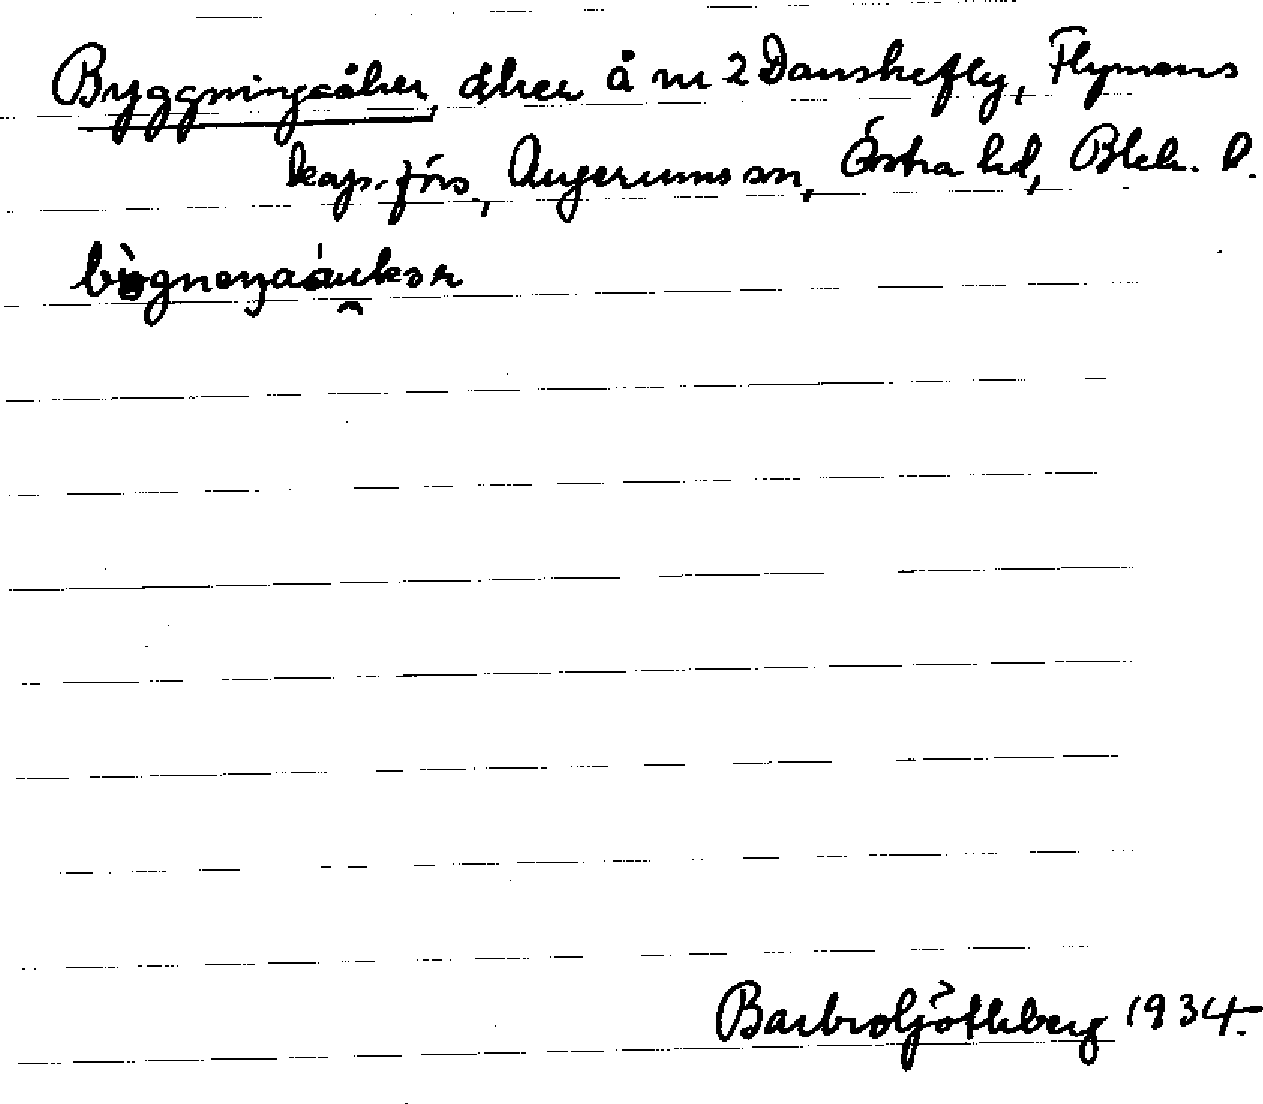 Byggningsåker, åker å nr 2 Danskefly, Flymens
kap.-förs., Augerums sn, Östra hd, Blek. l.
Barbro Götlberg 1934.